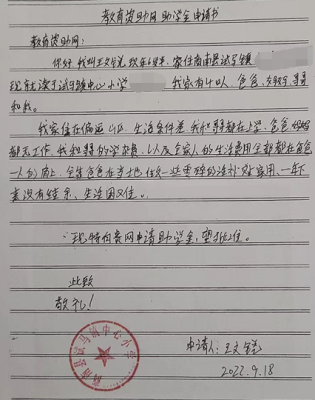 教育资助网助学金申请书
教育资助网:
你好,我叫王文 ,现年6岁,家住商南县试马镇
现就读于试马镇中心小学 我家有4口人,爸爸、妈妈、哥哥
和我。
我家住在偏远山区,生活条件差,我和哥哥都在上学,爸爸妈妈
都无工作,我和哥哥的学杂费,以及全家人的生活费用全部都在爸爸
一人的肩上,全年爸爸在当地做一些零碎的活补贴家用,一年下
来没有结余,生活困难。
现特向贵网申请助学金,望批准。
此致
敬礼!
商南县试马镇中心小学
申请人:王文
2022.9.18